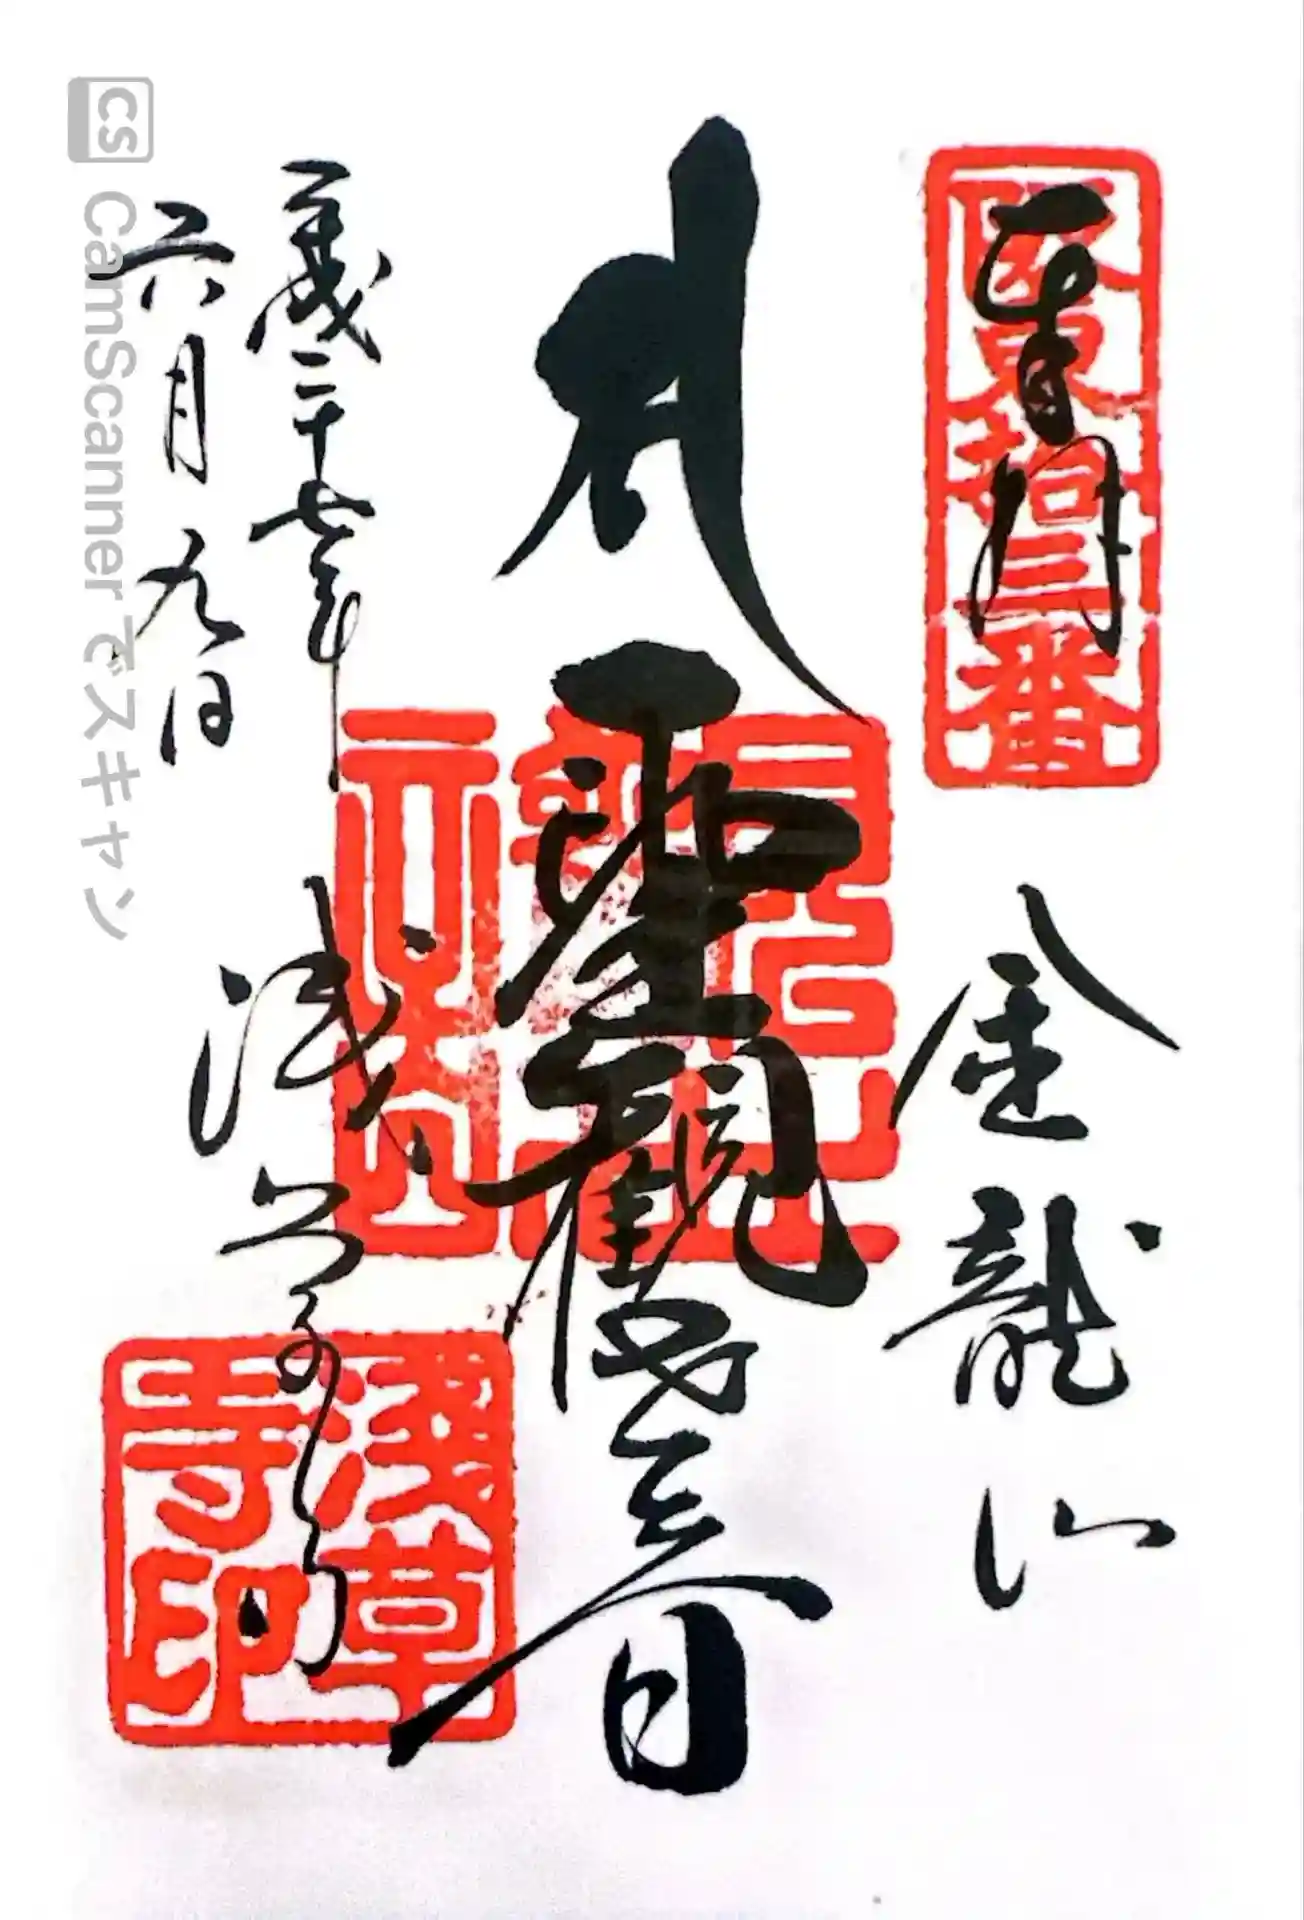 奉拝
坂東拾三番
金龍山
聖観世音
平成二十七年
六月九日
浅草寺
浅草寺印
CS CamScannerでスキャン